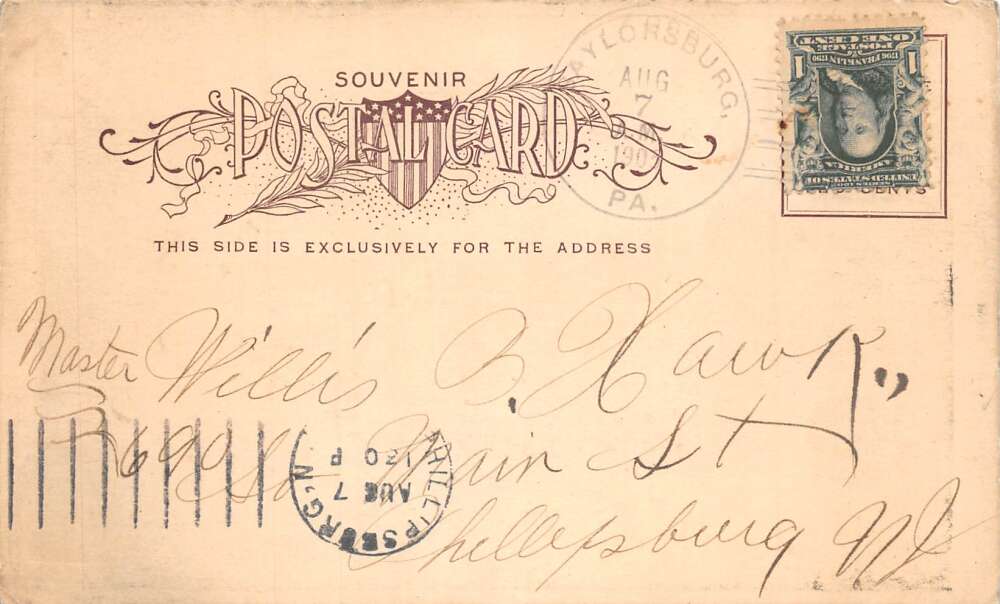 SOUVENIR
POSTAL CARD
THIS SIDE IS EXCLUSIVELY FOR THE ADDRESS
AYLORSBURG,
AUG
7
PA.
POSTAGE
ONE CENT
1706 FRANKLIN 1790
1 1
SERIES 1902
UNITED STATES OF
AMERICA
Master Willis B. Hawk
690 So Main St
Phillipsburg NJ
PHILLIPSBURG, N.
AUG 7
130 P